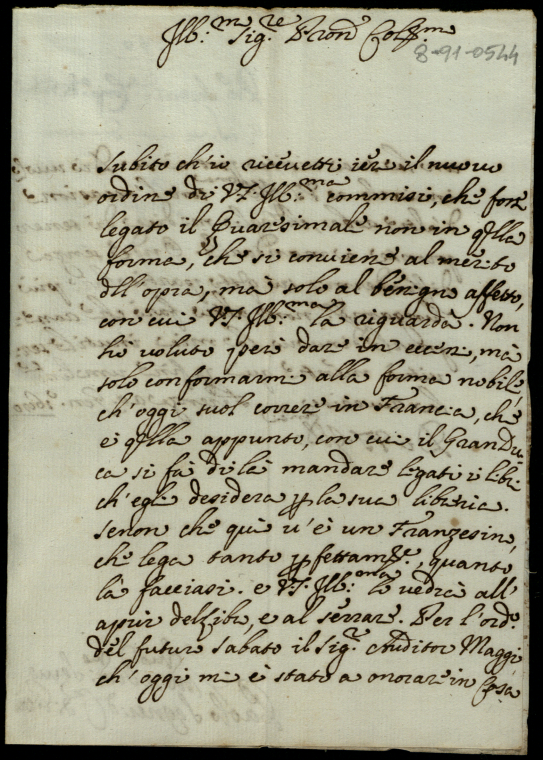 Ill.mo Sig.re P.ron Col.mo
8-91-0544
Subito ch'io ricevetti ier il nuovo
ordine di V.S. Ill.ma commisi, che fosse
legato il Quaresimale non in q͞lla
forma, che si conviene al merito
dell'opra, mà solo al benigno affetto,
con cui V.S. Ill.ma la riguarda. Non
hò voluto però dare in ecces, mà
solo conformarmi alla forma nobile,
ch'oggi suol correre in Francia, ch'è
è q͞lla appunto, con cui il GranDu-
ca si fà di là mandare legati i libri
ch'egli desidera p la sua libreria.
senon che quì v'è un Franzesino,
che lega tanto pfettam.te, quanto
là facciasi. e V.S. Ill.ma lo vedrà all'
aprir del libro, e al serrare. Per l'ord.o
del futuro sabato il Sig.r Auditor Maggi
ch'oggi m'è stato a trovare in Casa